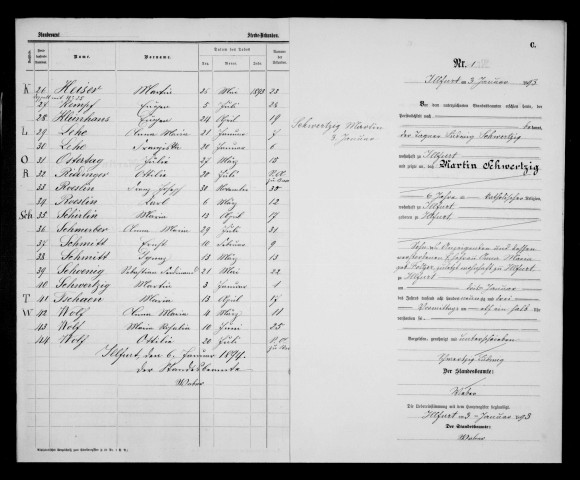 Standesamt
Sterbe-Urkunden.
Name.
Vorname.
Datum des Todes
Tag. Monat. Jahr.
K 26 Heiser Martin 24 Mai 1893 23
27 Kempf Eugen 5 Juli 26
28 Kleinhans Eugen 24 April 19
L 29 Lehe Anna Maria 21 Januar 7
30 Lehe Franziska 20 Januar 6
O 31 Ostertag Julie 27 März 13
R 32 Ottilia 20 Juli
33 Roeslin Franz Joseph 30 November 38
34 Roeslin Karl 6 März 12
Sch 35 Schürlin Maria 13 April 17
36 Schneider Anna Maria 29 Juli 31
37 Schmitt Ernst 10 Februar 9
38 Schmitt Ignaz 13 März 13
39 Schoenig Sebastian Ferdinand 21 Mai 22
40 Schwertzig Martin 3 Januar 1
T 41 Tschaen Maria 13 April 17
W 42 Wolf Anna Maria 4 März 11
43 Wolf Maria Rosalia 10 Juni 25
44 Wolf Ottilia 20 Juli
Illfurt, den 6. Januar 1894.
Der Standesbeamte
Weber
Schwertzig Martin
3 Januar
C.
Nr. 1
Illfurt am 3 Januar 1893
Vor dem unterzeichneten Standesbeamten erschien heute, der
Persönlichkeit nach
kannt,
der Tagner Ludwig Schwertzig
wohnhaft zu Illfurt
und zeigte an, daß Martin Schwertzig
6 Jahre alt, katholischer Religion,
wohnhaft zu Illfurt
geboren zu Illfurt
Sohn des Anzeigenden und dessen
verstorbenen Ehefrau Anna Maria
geb. zuletzt wohnhaft zu Illfurt
zu Illfurt
am Januar
des Jahres tausend acht hundert neunzig und drei
Vormittags um halb Uhr
verstorben sei.
Vorgelesen, genehmigt und unterschrieben
Schwertzig Ludwig
Der Standesbeamte:
Weber
Die Uebereinstimmung mit dem Hauptregister beglaubigt
Illfurt am 3 Januar 1893
Der Standesbeamte:
Weber